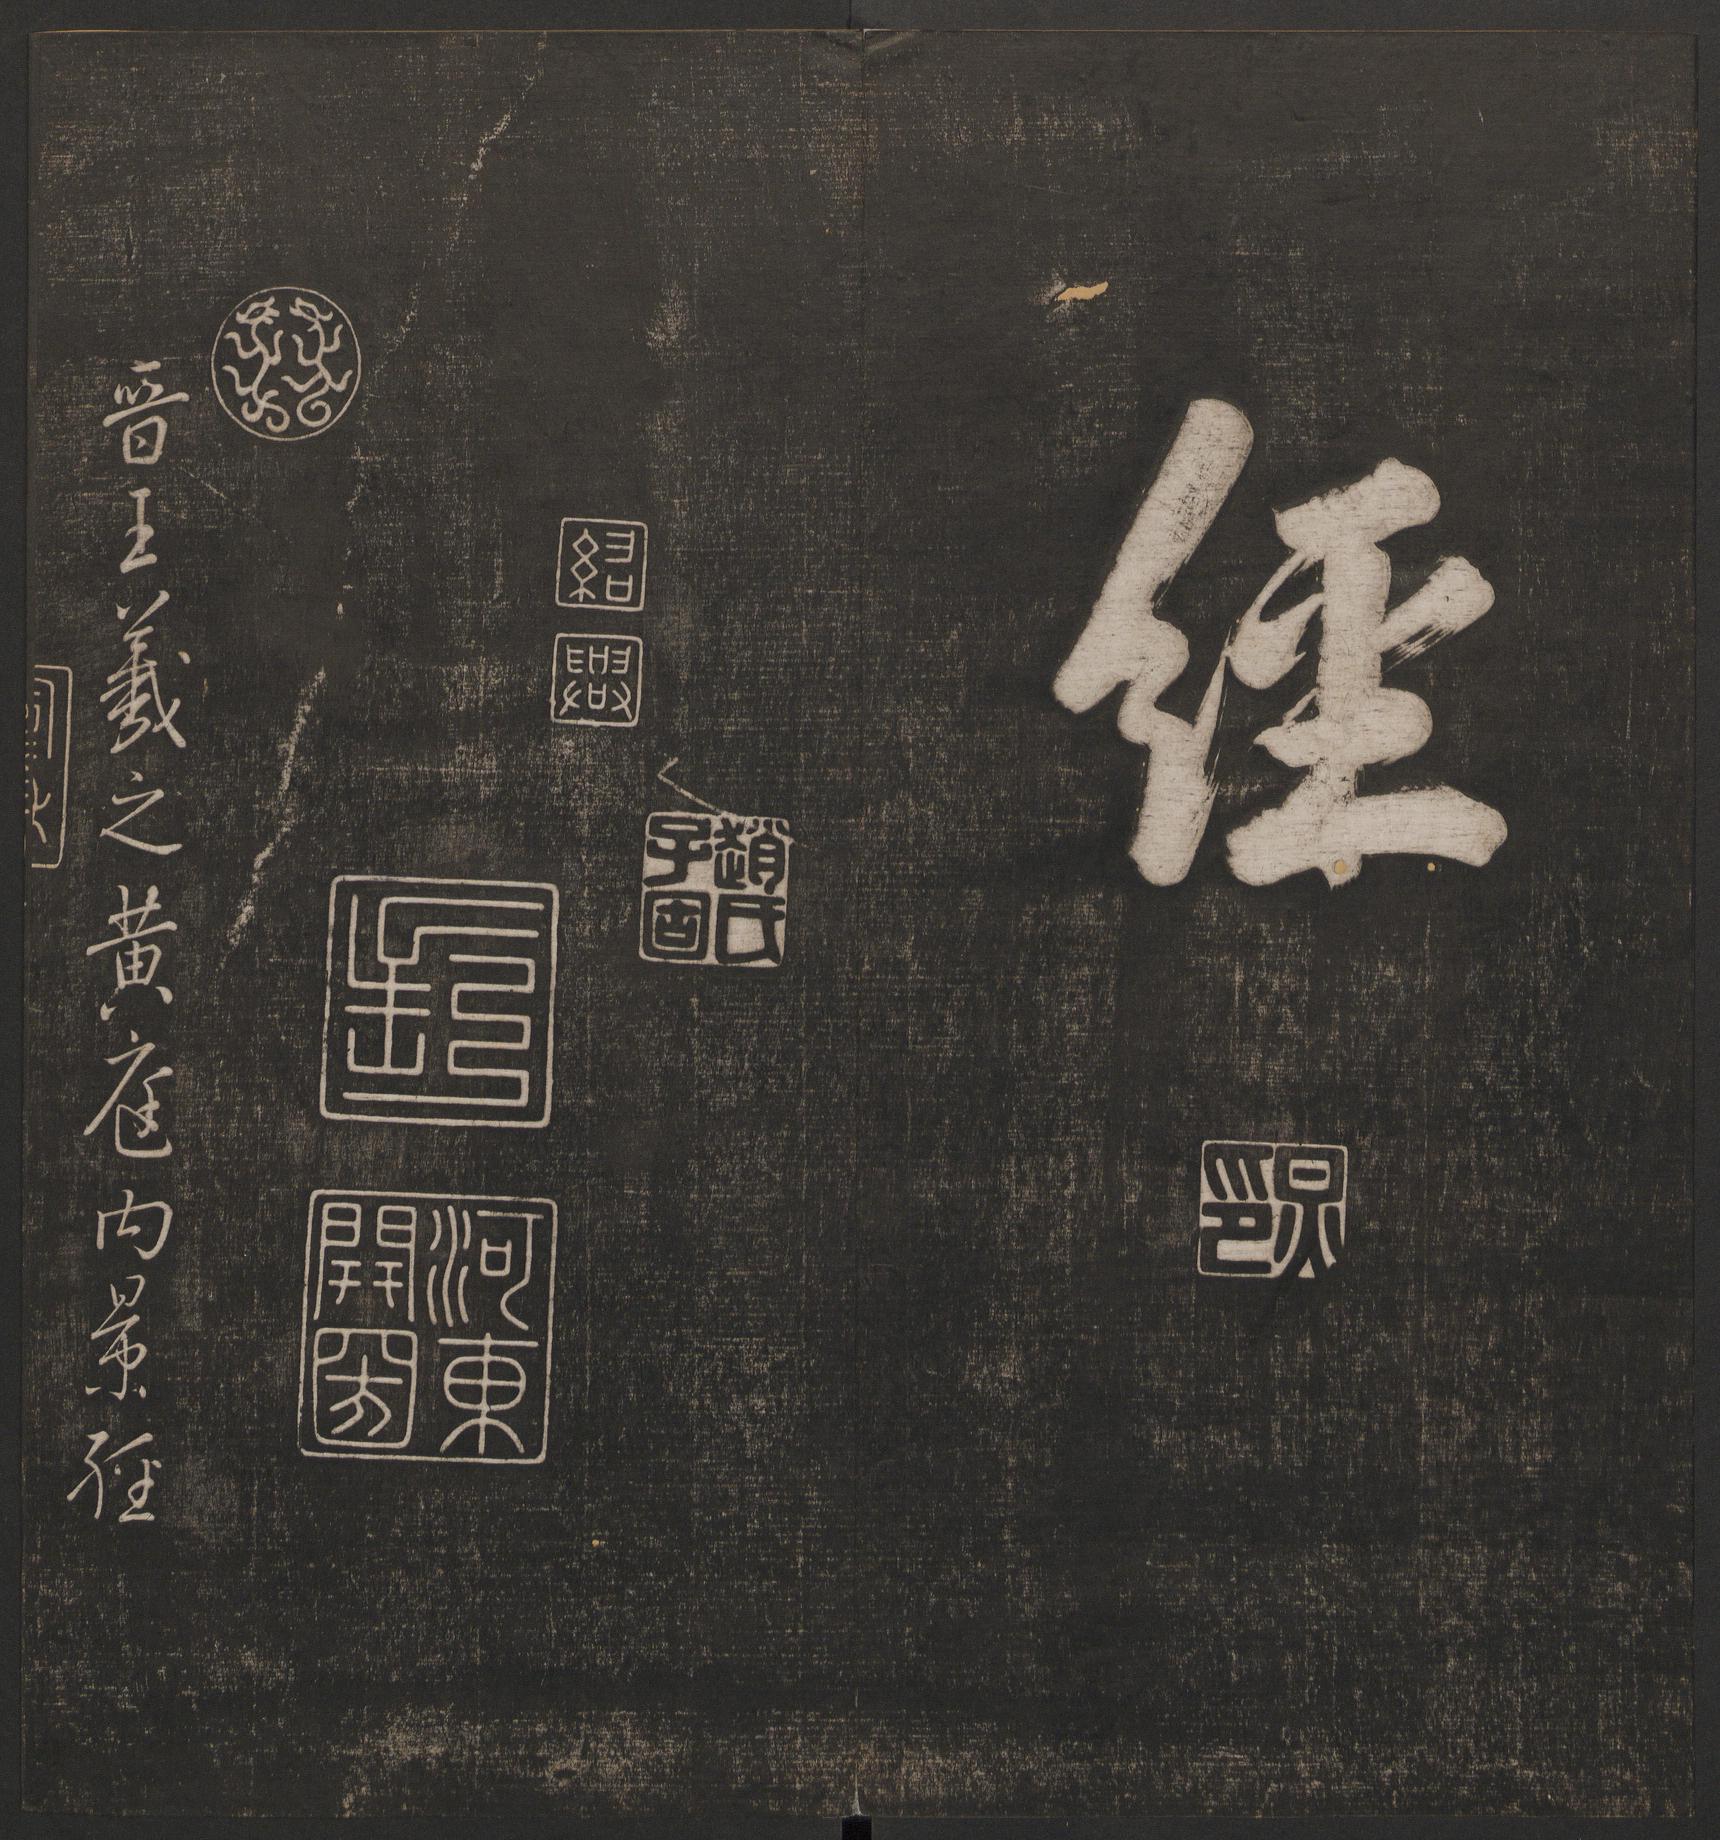 經
趙氏子固
紹
興
河東
晉王羲之黃庭內景經